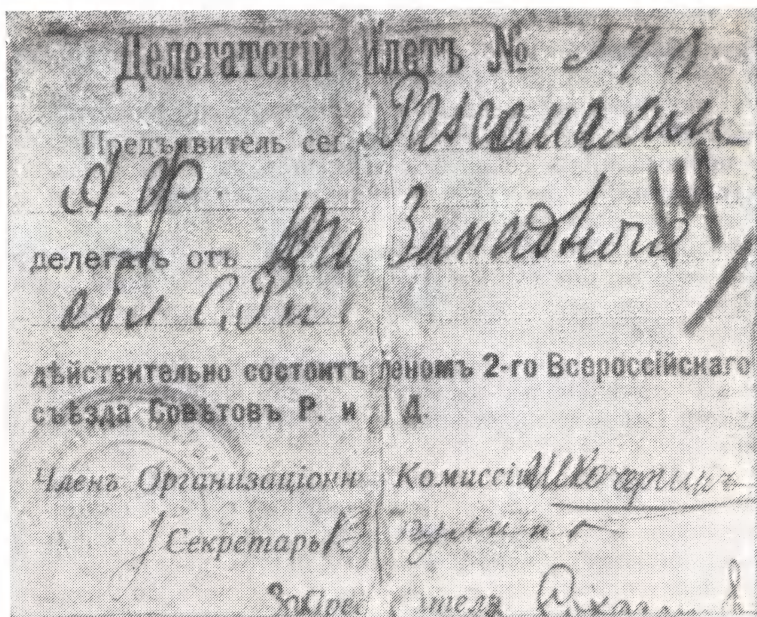 Делегатскій илетъ №
Предъявитель сег Рассомахин
А. Ф.
делегатъ отъ Юго Западного
обл С. Р и
дѣйствительно состоитъ леномъ 2-го Всероссійскаго
съѣзда Совѣтовъ Р. и Д.
Членъ Организаціонн Комиссіи
Секретарь